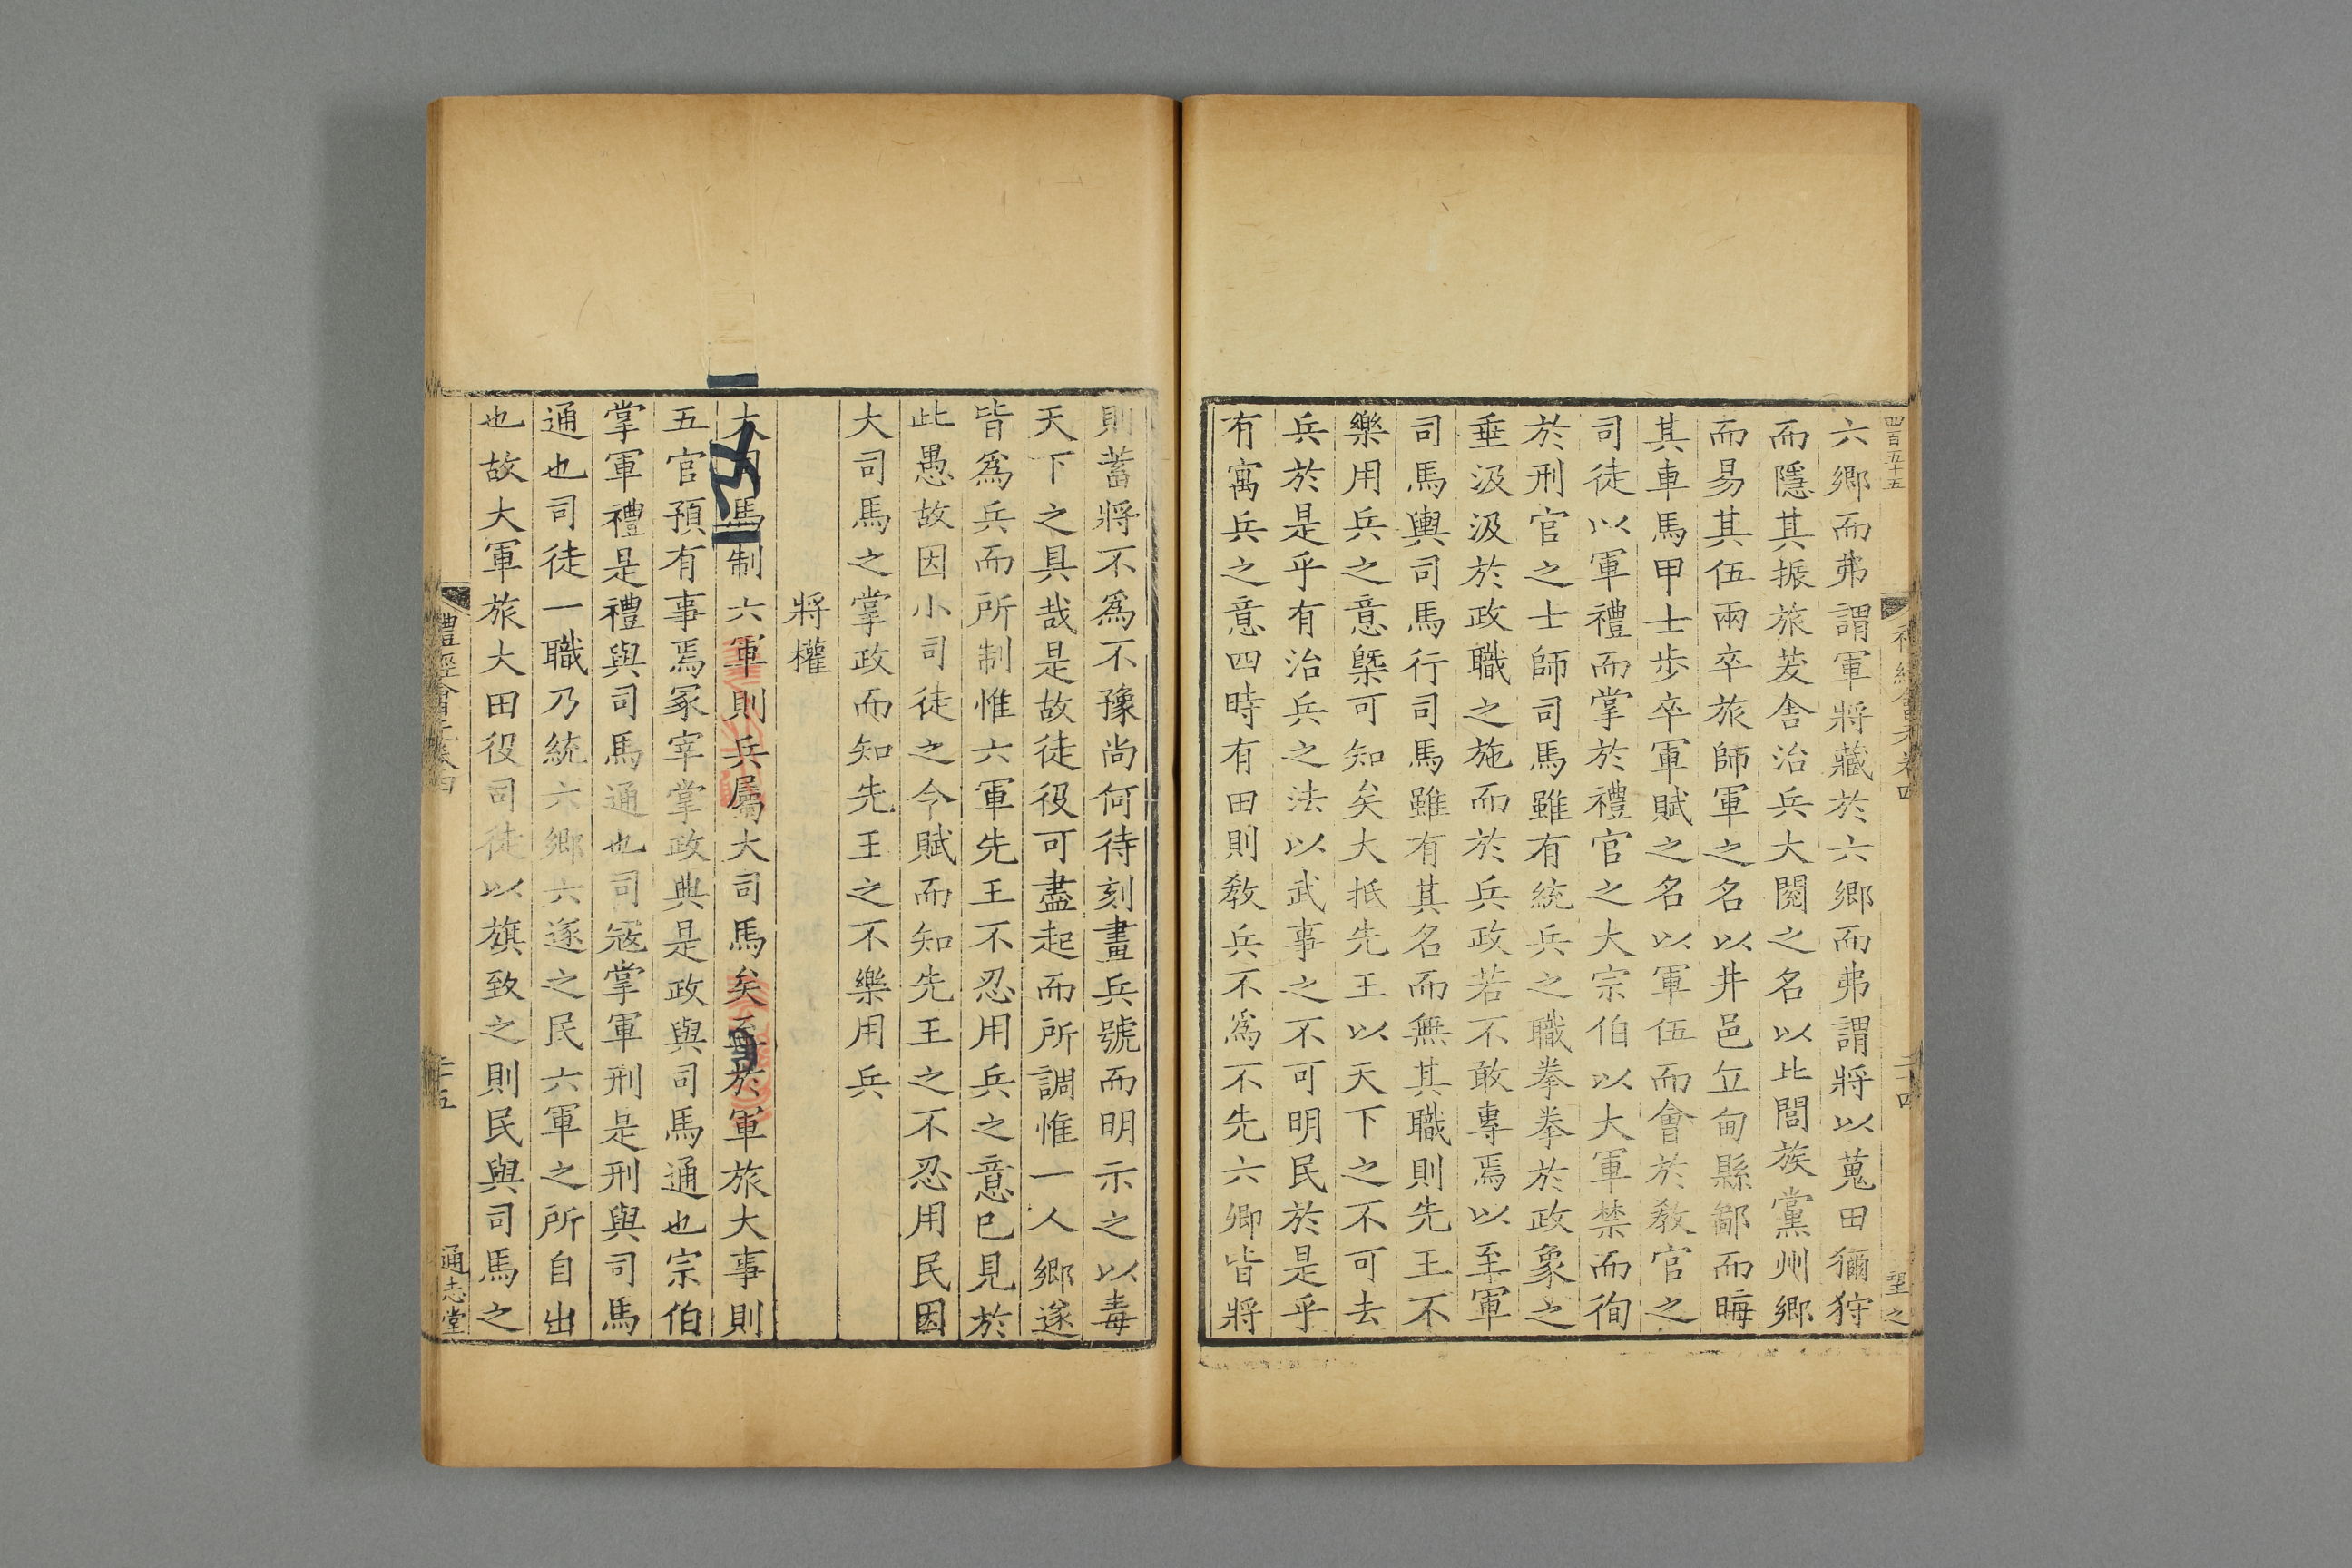 四百五十五
六鄉而弗謂軍將藏於六鄉而弗謂將以蒐田獮狩
而隱其振旅茇舍治兵大閱之名以比閭族黨州鄉
而易其伍兩卒旅師軍之名以井邑丘甸縣鄙而晦
其車馬甲士步卒軍賦之名以軍伍而會於敎官之
司徒以軍禮而掌於禮官之大宗伯以大軍禁而徇
於刑官之士師司馬雖有統兵之職拳拳於政象之
垂汲汲於政職之施而於兵政若不敢專焉以至軍
司馬輿司馬行司馬雖有其名而無其職則先王不
樂用兵之意槩可知矣大抵先王以天下之不可去
兵於是乎有治兵之法以武事之不可明民於是乎
有寓兵之意四時有田則敎兵不爲不先六卿皆將
則蓄將不爲不豫尚何待刻畫兵號而明示之以毒
天下之具哉是故徒役可盡起而所調惟一人鄉遂
皆爲兵而所制惟六軍先王不忍用兵之意已見於
此愚故因小司徒之令賦而知先王之不忍用民因
大司馬之掌政而知先王之不樂用兵
將權
大司馬制六軍則兵屬大司馬矣至於軍旅大事則
五官預有事焉冢宰掌政典是政與司馬通也宗伯
掌軍禮是禮與司馬通也司寇掌軍刑是刑與司馬
通也司徒一職乃統六鄉六遂之民六軍之所自出
也故大軍旅大田役司徒以旗致之則民與司馬之
禮經會元卷四
二十五
通志堂